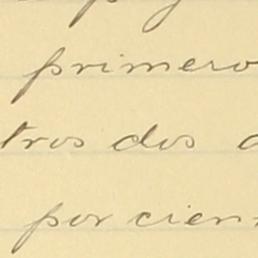 primero
tros dos
por cien